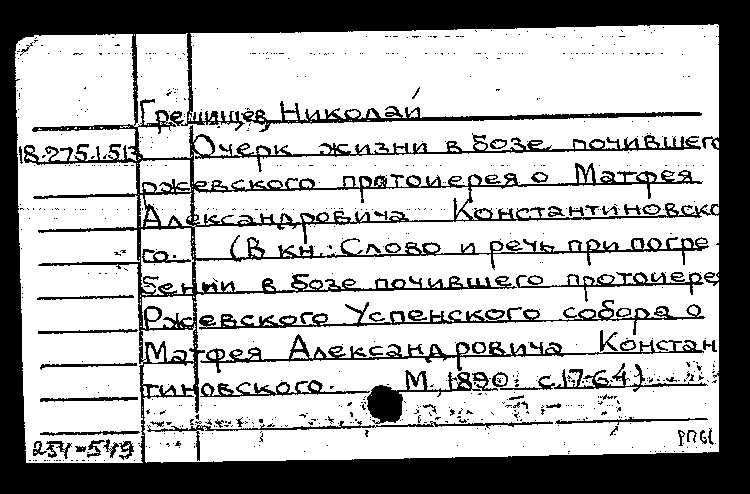 Грешищев, Николай
18.275.1.513 Очерк жизни в бозе почившего
ржевского протоиерея о Матфея
Александровича Константиновско
го. (В кн.: Слово и речь при погре-
бении в бозе почившего протоиере
Ржевского Успенского собора о
Матфея Александровича Констан
тиновского. М, 1890 с.17-64)
254-549